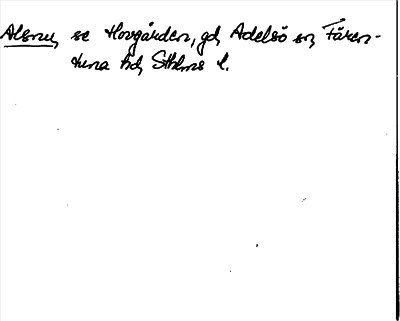 Alsnu, se Hovgården, gd, Adelsö sn, Fären-
tuna hd, Sthlms l.